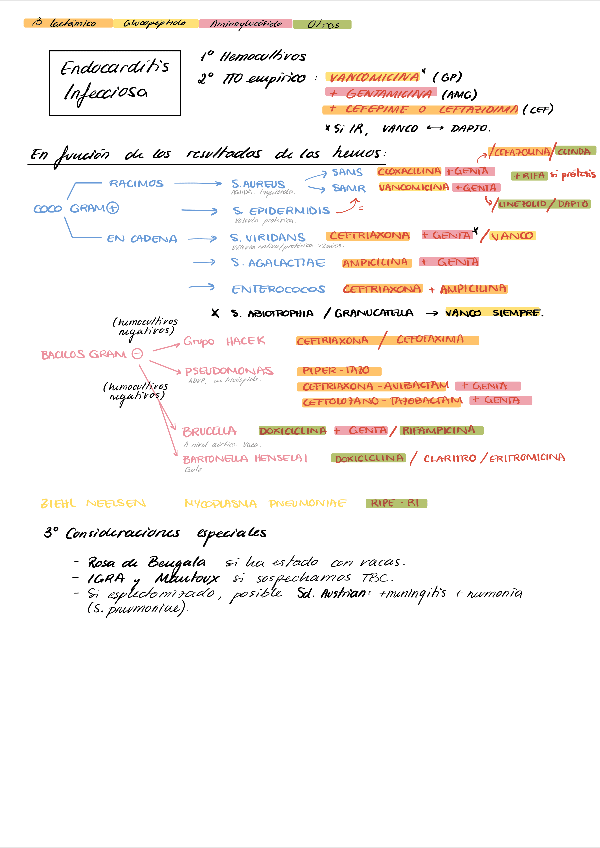 B lactámico Glucopeptido Aminoglucósido Otros
Endocarditis
Infecciosa
1º Hemocultivos
2º TTO empírico: VANCOMICINA* (GP)
+ GENTAMICINA (AMG)
+ CEFEPIME O CEFTAZIDIMA (CEF)
* Si IR, VANCO ↔ DAPTO.
En función de los resultados de los hemos:
/CEFAZOLINA/CLINDA
RACIMOS → S. AUREUS → SANS CLOXACILINA + GENTA + RIFA si protesis
→ SAMR VANCOMICINA + GENTA
/LINEZOLID/DAPTO
COCO GRAM ⊕ → S. EPIDERMIDIS =
EN CADENA → S. VIRIDANS CEFTRIAXONA + GENTA* / VANCO
→ S. AGALACTIAE AMPICILINA + GENTA
→ ENTEROCOCOS CEFTRIAXONA + AMPICILINA
* S. ABIOTROPHIA / GRANUCATELLA → VANCO SIEMPRE.
(hemocultivos
negativos)
Grupo HACEK CEFTRIAXONA / CEFOTAXIMA
BACILOS GRAM ⊖
PSEUDOMONAS PIPER-TAZO
(hemocultivos
negativos)
CEFTRIAXONA-AVIBACTAM + GENTA
CEFTOLOZANO-TAZOBACTAM + GENTA
BRUCELLA DOXICICLINA + GENTA / RIFAMPICINA
BARTONELLA HENSELAI DOXICICLINA / CLARITRO / ERITROMICINA
ZIEHL NEELSEN MYCOPLASMA PNEUMONIAE RIPE-RI
3º Consideraciones especiales
- Rosa de Bengala si ha estado con vacas.
- IGRA y Mantoux si sospechamos TBC.
- Si esplectomizado, posible Sd. Austrian: +meningitis + neumonía
(S. pneumoniae).